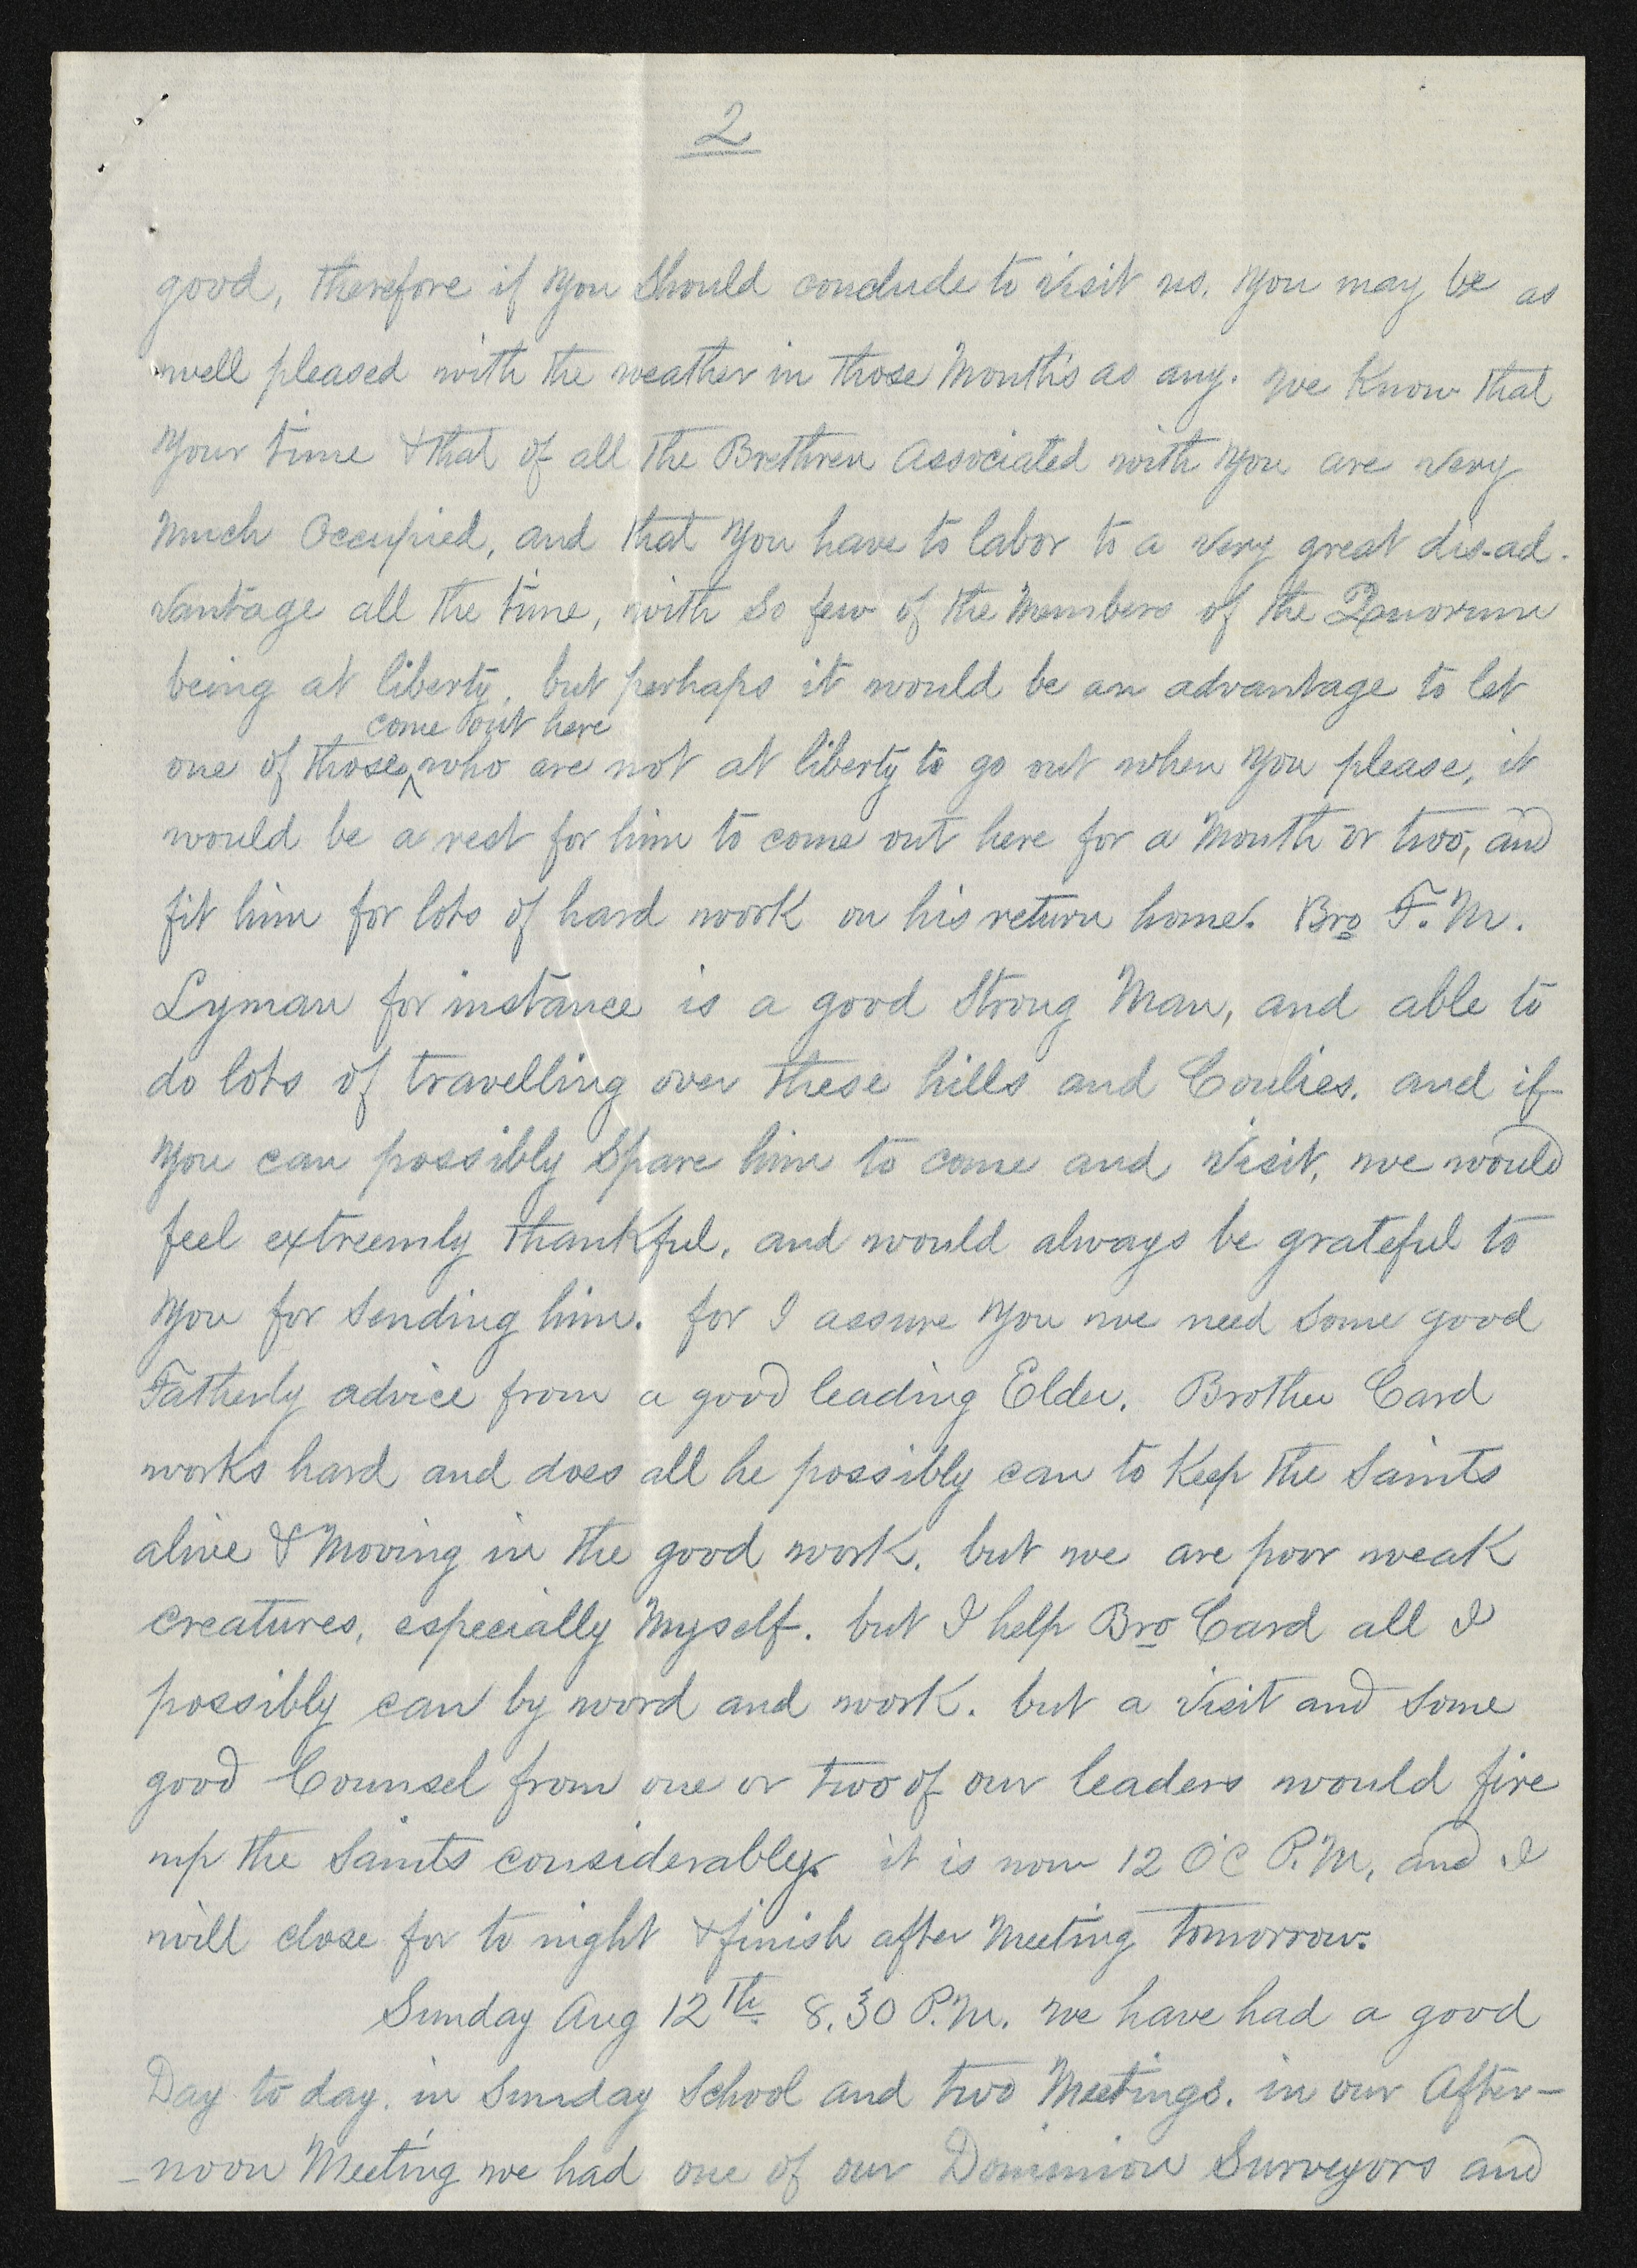 2
good, therefore if you should conclude to visit us. you may be as
well pleased with the weather in those Months as any. we Know that
your time & that of all the Brethren Associated with you are very
much Occupied, and that you have to labor to a very great dis-ad-
vantage all the time, with so few of the Members of the Quorum
being at liberty. but perhaps it would be an advantage to let
come out here
one of those ^ who are not at liberty to go out when you please, it
would be a rest for him to come out here for a Month or two, and
fit him for lots of hard work on his return home. Bro F. M.
Lyman for instance is a good Strong Man, and able to
do lots of travelling over these hills and Coulies. and if
you can possibly Spare him to come and visit, we would
feel extreemly thankful, and would always be grateful to
you for sending him. for I assure you we need some good
Fatherly advice from a good leading Elder. Brother Card
works hard and does all he possibly can to Keep the Saints
alive & Moving in the good work. but we are poor weak
creatures, especially Myself. but I help Bro Card all I
possibly can by word and work. but a visit and some
good Counsel from one or two of our leaders would fire
up the Saints considerably. it is now 12 O'C P.M, and I
will close for to night & finish after Meeting tomorrow.
Sunday Aug 12th 8.30 P.M. we have had a good
Day to day. in Sunday School and two Meetings. in our After-
-noon Meeting we had one of our Dominion Surveyors and